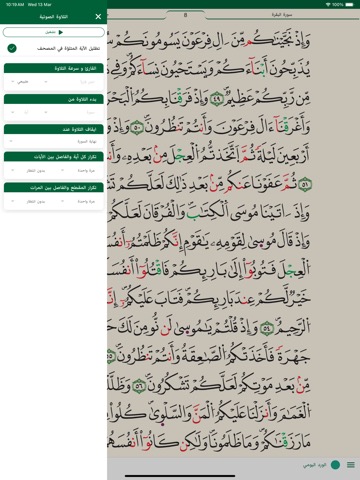 10:19 AM Wed 13 Mar
100%
التلاوة الصوتية
تشغيل
تظليل الآية المتلوّة في المصحف
القارئ و سرعة التلاوة
طبيعي
بدء التلاوة من
ايقاف التلاوة عند
نهاية السورة
تكرار كل آية والفاصل بين الآيات
مرة واحدة
بدون انتظار
تكرار المقطع والفاصل بين المرات
مرة واحدة
بدون انتظار
سورة البقرة
8
وَإِذْ نَجَّيْنَٰكُم مِّنْ ءَالِ فِرْعَوْنَ يَسُومُونَكُمْ
يُذَبِّحُونَ أَبْنَآءَكُمْ وَيَسْتَحْيُونَ نِسَآءَكُمْ وَفِي
مِّن رَّبِّكُمْ عَظِيمٌ ٤٩ وَإِذْ فَرَقْنَا بِكُمُ ٱلْبَحْرَ
وَأَغْرَقْنَآ ءَالَ فِرْعَوْنَ وَأَنتُمْ تَنظُرُونَ ٥٠ وَإِذْ
أَرْبَعِينَ لَيْلَةً ثُمَّ ٱتَّخَذْتُمُ ٱلْعِجْلَ مِنۢ بَعْدِهِۦ
٥١ ثُمَّ عَفَوْنَا عَنكُم مِّنۢ بَعْدِ ذَٰلِكَ لَعَلَّكُمْ
وَإِذْ ءَاتَيْنَا مُوسَى ٱلْكِتَٰبَ وَٱلْفُرْقَانَ لَعَلَّكُمْ
وَإِذْ قَالَ مُوسَىٰ لِقَوْمِهِۦ يَٰقَوْمِ إِنَّكُمْ ظَلَمْتُمْ أَنفُسَكُم
ٱلْعِجْلَ فَتُوبُوٓا۟ إِلَىٰ بَارِئِكُمْ فَٱقْتُلُوٓا۟ أَنفُسَكُمْ
خَيْرٌ لَّكُمْ عِندَ بَارِئِكُمْ فَتَابَ عَلَيْكُمْ إِنَّهُۥ
ٱلرَّحِيمُ ٥٤ وَإِذْ قُلْتُمْ يَٰمُوسَىٰ لَن نُّؤْمِنَ لَكَ حَتَّىٰ
جَهْرَةً فَأَخَذَتْكُمُ ٱلصَّٰعِقَةُ وَأَنتُمْ تَنظُرُونَ ٥٥
مِّنۢ بَعْدِ مَوْتِكُمْ لَعَلَّكُمْ تَشْكُرُونَ ٥٦ وَظَلَّلْنَا
ٱلْغَمَامَ وَأَنزَلْنَا عَلَيْكُمُ ٱلْمَنَّ وَٱلسَّلْوَىٰ كُلُوا۟
مَا رَزَقْنَٰكُمْ وَمَا ظَلَمُونَا وَلَٰكِن كَانُوٓا۟ أَنفُسَهُمْ
الورد اليومي